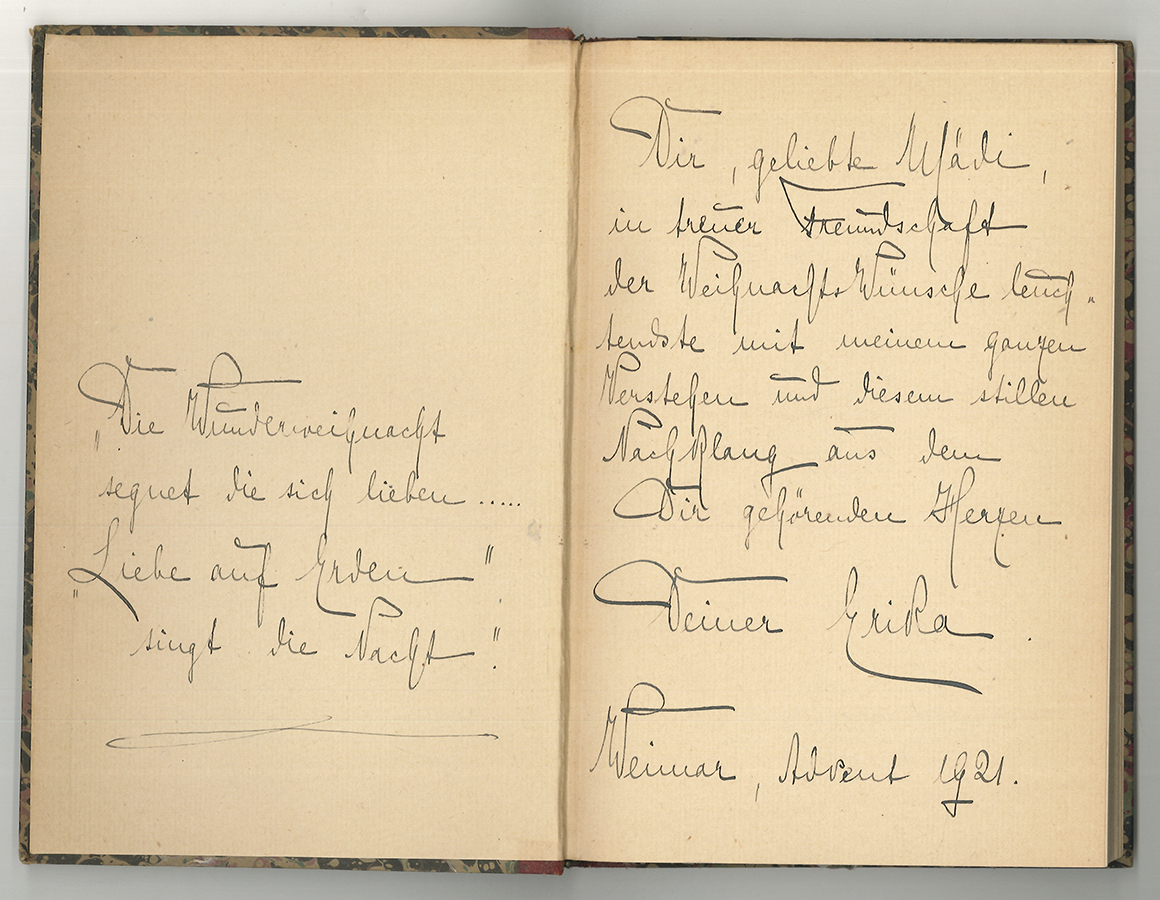 „Die Wunderweihnacht
segnet die sich lieben .....
„Liebe auf Erden"
singt die Nacht".
Dir, geliebte Mädi,
in treuer Freundschaft
der WeihnachtsWünsche leuch„
tendste mit meinem ganzen
Verstehen und diesem stillen
NachKlang aus dem
Dir gehörenden Herzen
Deiner Erika.
Weimar, Advent 1921.